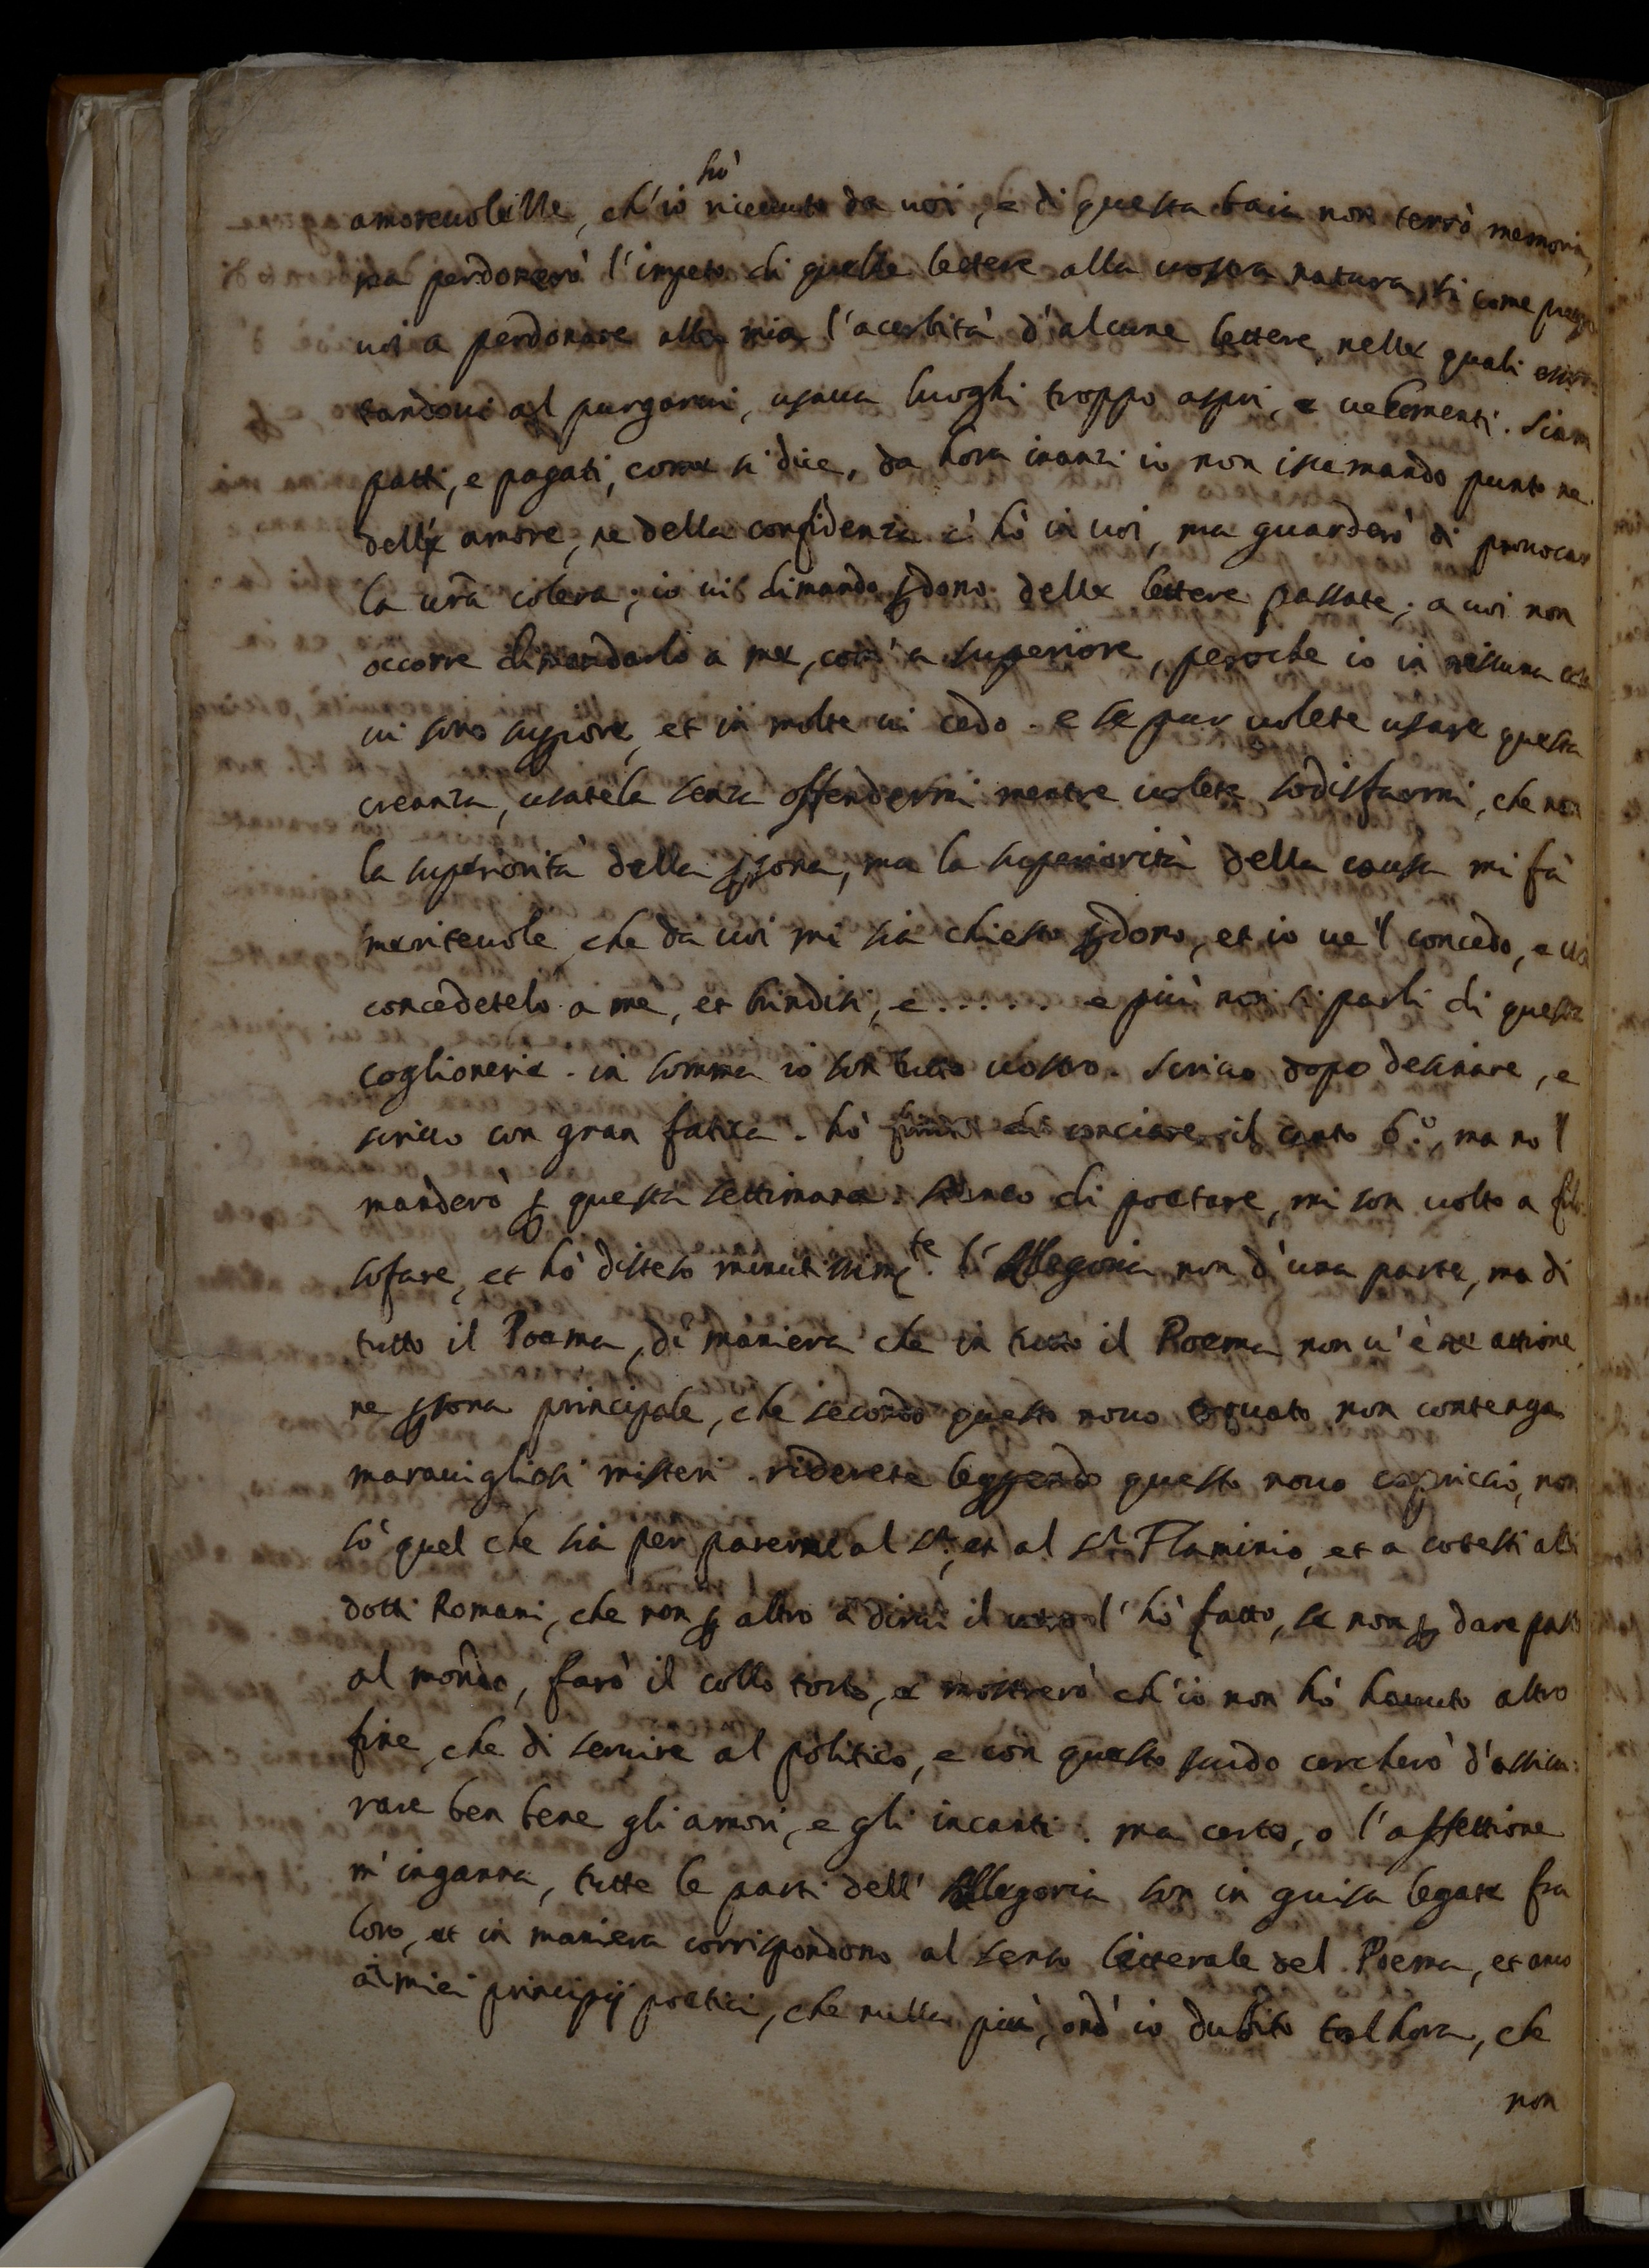 hò
amorevolezze, ch'io riceuuto da uoi, e di questa baia non terrò memoria,
ma perdonerò l'impeto di quelle lettere alla uostra natura, si come prego
uoi a perdonare alla mia l'acerbità d'alcune lettere, nelle quali essor-
tandoui al purgarui, usaua luoghi troppo aspri, e uehementi. Siam
patti, e pagati, come si dice, da hora inanzi io non iscemando punto ne
dell' amore, ne della confidenza c' hò in uoi, ma guarderò di prouocar
la ura colera; io ui dimando pdono delle lettere passate; a uoi non
occorre dimandarlo a me, com' a superiore, peroche io in nissuna cosa
ui sono supiore, et in molte ui cedo. e se pur uolete usare questa
creanza, usatela senza offendermi mentre uolete sodisfarmi, che non
la superiorità della psona, ma la superiorità della causa mi fà
meriteuole, che da uoi mi sia chiesto pdono, et io ue 'l concedo, e uoi
concedetelo a me, et brindisi, e..... e più non si parli di questa
coglioneria. in somma io son tutto uostro. scriuo dopo desinare, e
scriuo con gran fatica. hò conciare il canto 6.º, ma no 'l
manderò p questa settimana. Stanco di poetare, mi son uolto a filo-
sofare, et hò disteso minutissimte. l'Allegoria non d'una parte, ma di
tutto il Poema, di maniera che in tutto il Poema non u' è ne attione,
ne psona principale, che secondo questo nouo trouato non contenga
marauigliosi misteri. riderete leggendo questo nouo capriccio, non
sò quel che sia per parerne al Sr., et al Sr. Flaminio, et a cotesti altri
dotti Romani, che non p altro a dirui il uero l' hò fatto, se non p dare pasto
al mondo, farò il collo torto, e mostrerò ch'io non hò hauuto altro
fine, che di seruire al politico, e con questo scudo cercherò d'assicu-
rare ben bene gli amori, e gli incanti. ma certo, o l'affettione
m' inganna, tutte le parti dell' Allegoria son in guisa legate fra
loro, et in maniera corrispondono al senso letterale del Poema, et anco
ai miei principij poetici, che nulla più, ond' io dubito tal hora, che
non